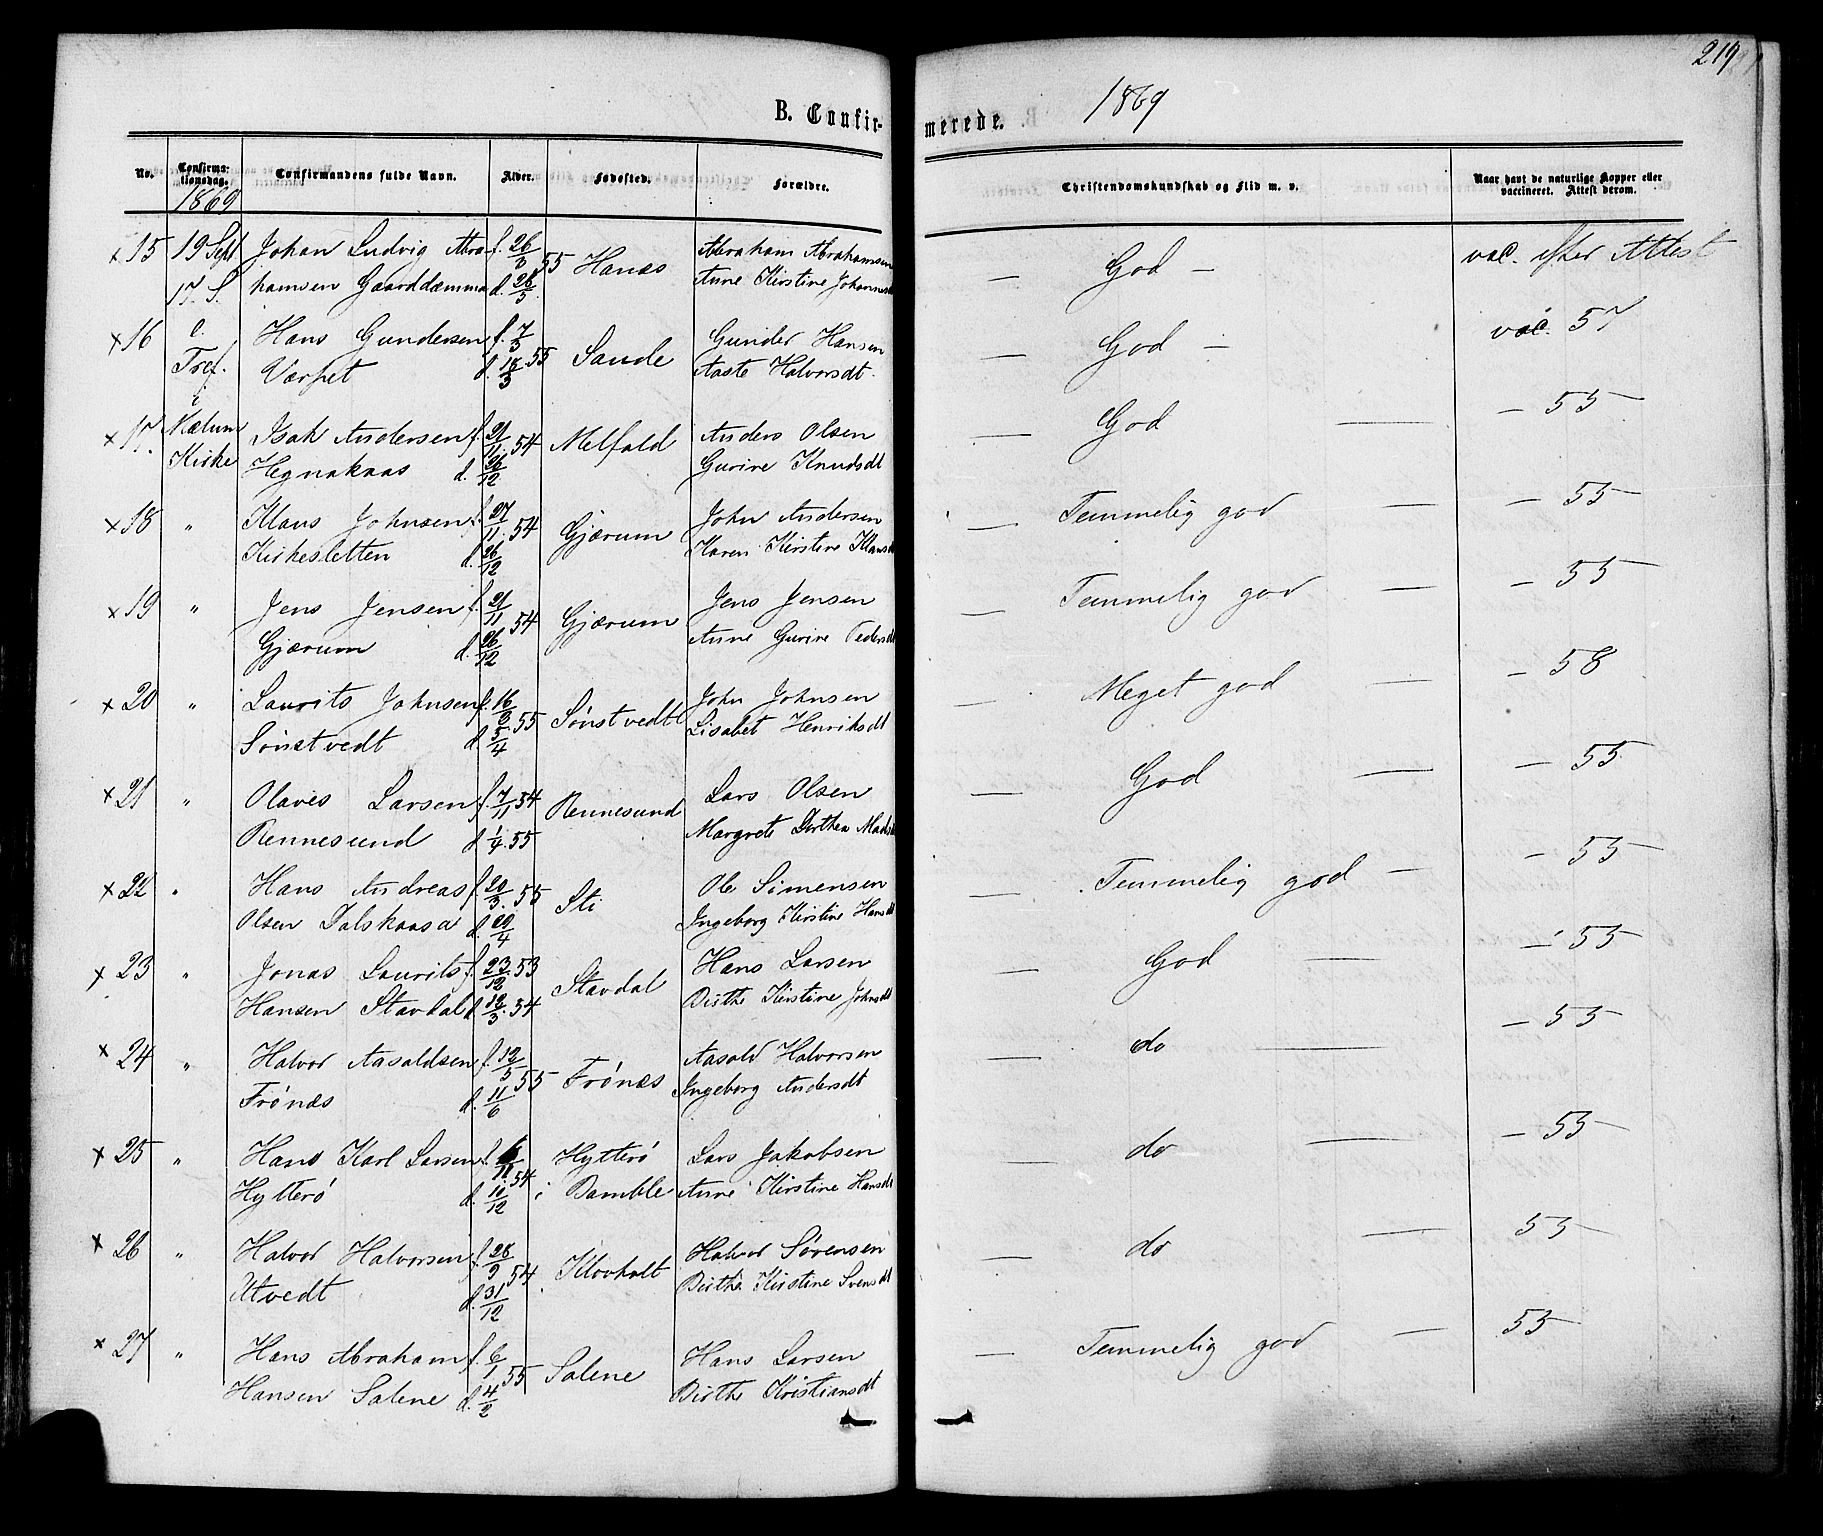 219
1869
B. Confirmerede.
No. Confirmationsdag. Confirmandens fulde Navn. Alder. Fødested. Forældre. Christendomskundskab og Flid m. v. Naar havt de naturlige Kopper eller vaccineret. Attest derom.
1869
x 15 19 Sept Johan Ludvig Abra- f. 26/3 55 Hanæs Abraham Abrahamsen — God — vac. efter Attest
17. S. hamsen Gaarddæmma d. 28/5 Anne Kirstine Johannesd
x 16 e. Hans Gundersen f. 7/3 55 Sande Gunder Hansen — God — vac. 57
Tref. Varpet d. 18/3 Aaste Halvorsdt.
i
x 17. Mælum Isak Andersen f. 21/11 54 Melfald Anders Olsen — God — — 55
Kirke Hegnakaas d. 26/12 Gurine Knudsdt
x 18 " Klaus Johnsen f. 27/11 54 Gjærum John Andersen — Temmelig god — — 55
Kirkesletten d. 26/12 Karen Kirstine Klausd
x 19 " Jens Jensen f. 21/11 54 Gjærum Jens Jensen — Temmelig god — — 55
Gjærum d. 26/12 Anne Gurine Pedersdt
x 20 " Laurits Johnsen f. 16/3 55 Sønstvedt John Johnsen — Meget god — — 58
Sønstvedt d. 5/4 Lisabet Henriksdt
x 21 " Olaves Larsen f. 7/11 54 Rennesund Lars Olsen — God — — 55
Rennesund d. 1/4. 55 Margrete Dorthea Mads
x 22 " Hans Andreas f. 20/3. 55 Sti Ole Simensen — Temmelig god — — 55
Olsen Dalskaasa d. 20/4 Ingeborg Kirstine Hansdt
x 23 " Jonas Laurits f. 23/12 53 Stavdal Hans Larsen — God — — 55
Hansen Stavdal d. 12/3. 54 Birthe Kirstine Johnsdt
x 24 " Halvor Aasoldsen f. 12/5 55 Frønæs Aasold Halvorsen — do — — 55
Frønæs d. 11/6 Ingeborg Andersdt
x 25 " Hans Karl Larsen f. 6/11 54 Hytterø Lars Jakobsen — do — — 55
Hytterø d. 10/12 i Bamble Anne Kirstine Hansdt
x 26 " Halvor Halvorsen f. 28/9 54 Klovholt Halvor Sørensen — do — 55 —
Utvedt d. 31/12 Birthe Kirstine Svensdt
x 27 " Hans Abraham f. 6/1 55 Salene Hans Larsen — Temmelig god — 55 —
Hansen Salene d. 4/2 Birthe Kristiansdt